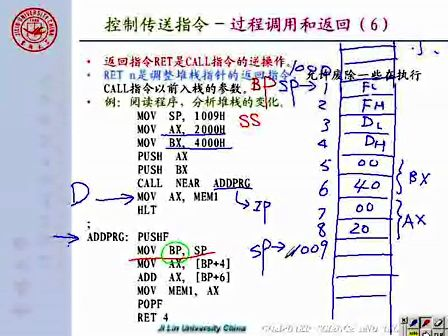 控制传送指令－过程调用和返回（6）
返回指令RET是CALL指令的逆操作。
RET n是调整堆栈指针的返回指令，允许废除一些在执行
CALL指令以前入栈的参数。
例：阅读程序、分析堆栈的变化。
MOV SP, 1009H
MOV AX, 2000H
MOV BX, 4000H
PUSH AX
PUSH BX
CALL NEAR ADDPRG
MOV AX, MEM1
HLT
;
ADDPRG: PUSHF
MOV BP, SP
MOV AX, [BP+4]
ADD AX, [BP+6]
MOV MEM1, AX
POPF
RET 4
BP
SP
SS
D
IP
1 FL
2 FH
3 DL
4 DH
5 00
6 40
7 00
8 20
BX
AX
SP 1009
Ji Lin University China